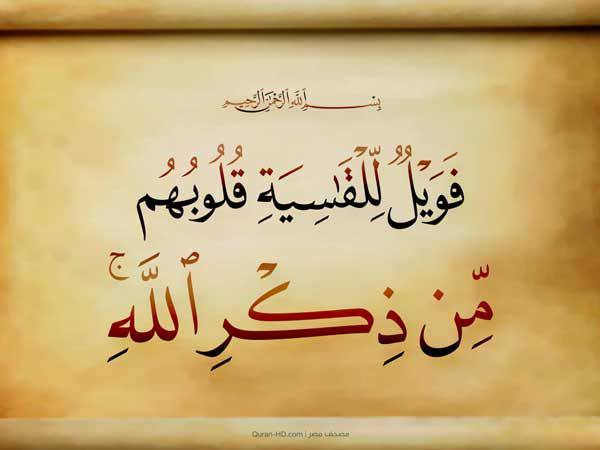 بِسْمِ ٱللَّهِ ٱلرَّحْمَٰنِ ٱلرَّحِيمِ
فَوَيْلٌ لِّلْقَٰسِيَةِ قُلُوبُهُم
مِّن ذِكْرِ ٱللَّهِ ۚ
Quran-HD.com : مصحف مصر